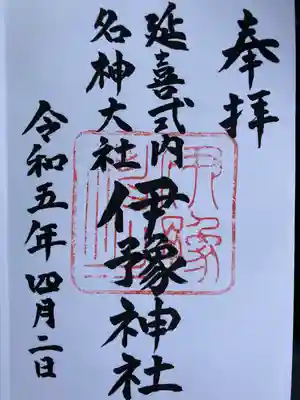 奉拝
延喜式内
名神大社
伊豫神社
令和五年四月二日